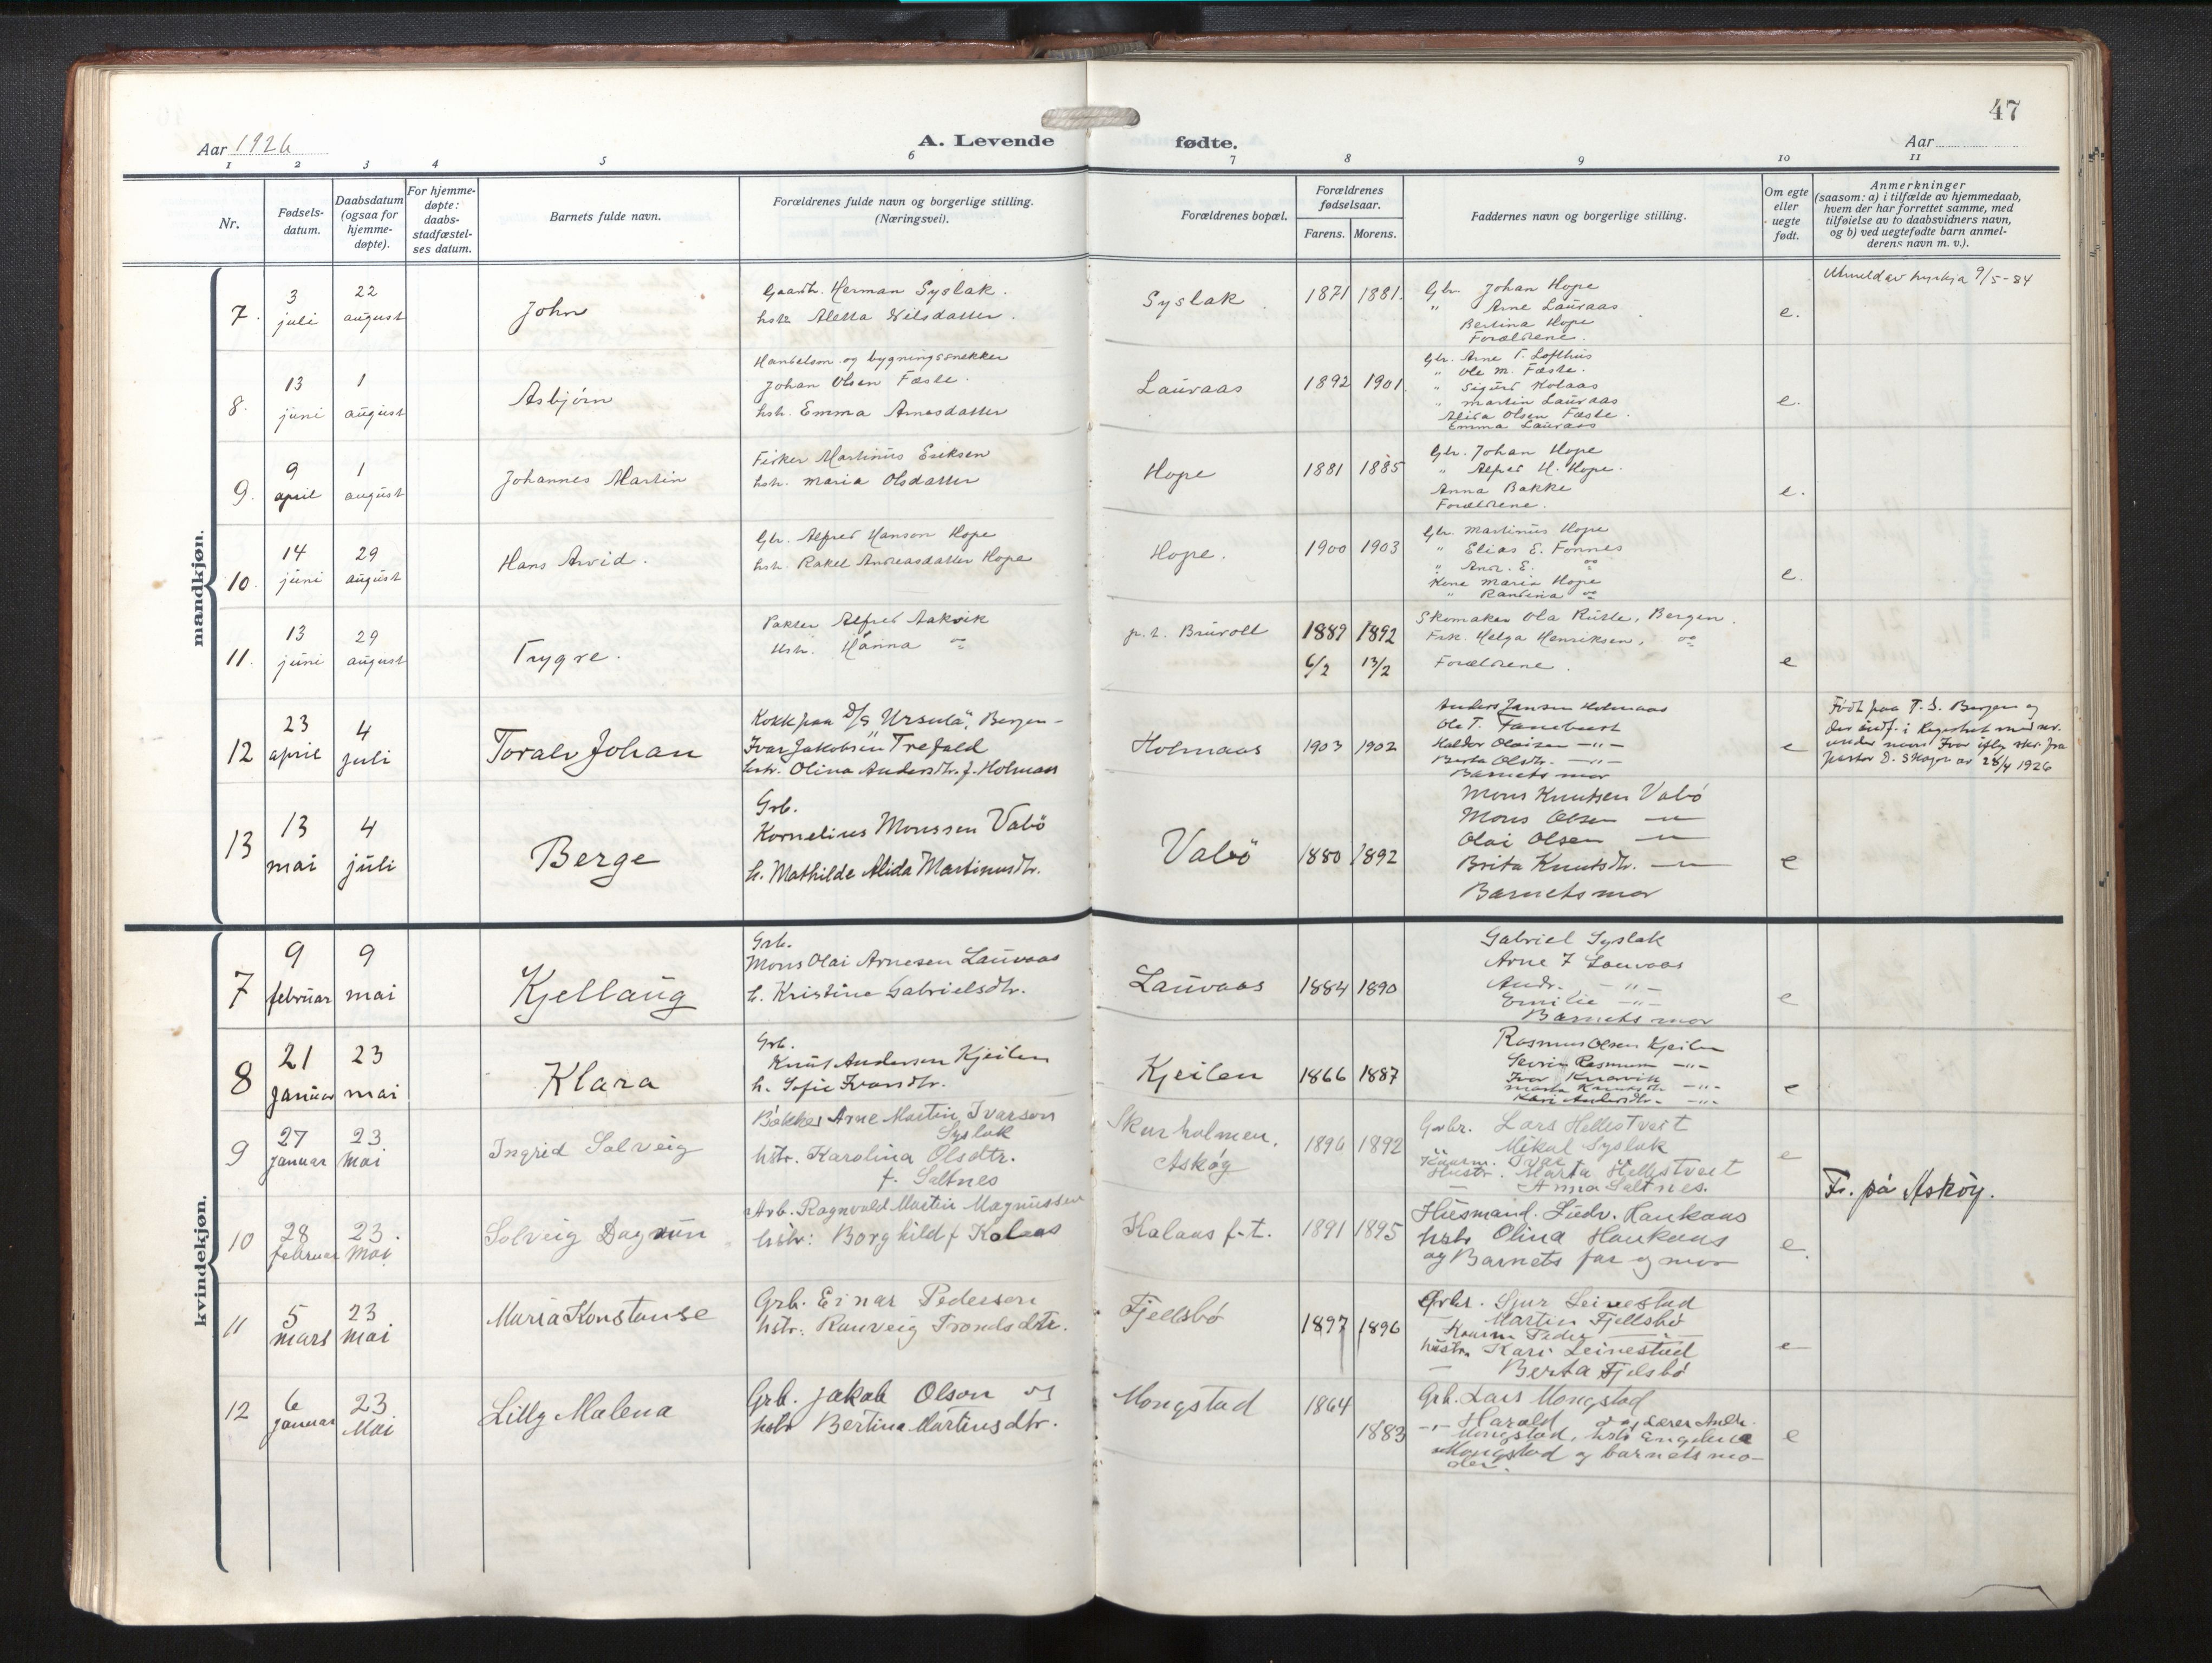 47
Aar 1926
A. Levende
fødte.
Aar
1 2 3 4 5 6 7 8 9 10 11
Nr.
Fødsels-
datum.
Daabsdatum
(ogsaa for
hjemme-
døpte).
For hjemme-
døpte:
daabs-
stadfæstel-
ses datum.
Barnets fulde navn.
Forældrenes fulde navn og borgerlige stilling.
(Næringsvei).
Forældrenes bopæl.
Forældrenes
fødselsaar.
Farens. Morens.
Faddernes navn og borgerlige stilling.
Om egte
eller
uegte
født.
Anmerkninger
(saasom: a) i tilfælde av hjemmedaab,
hvem der har forrettet samme, med
tilføielse av to daabsvidners navn,
og b) ved uegtefødte barn anmel-
derens navn m. v.).
mandkjøn.
7.
3
juli
22
august
John
Gaardbr. Herman Syslak.
hstr. Aletta Nilsdatter.
Syslak
1871 1881.
Gbr. Johan Hope
" Arne Lauraas
Bertina Hope
Forældrene.
e.
Utmeld av kyrkja 9/5-84
8.
13
juni
1
august
Asbjørn
Handelsm. og bygningssnekker
Johan Olsen Fæste.
hstr. Emma Arnesdatter
Lauraas
1892 1901.
Gbr. Arne T. Lofthus
" Ole M. Fæste.
" Sigurd Kolaas
" Martin Lauraas
Alida Olsen Fæste.
Emma Lauraas
e.
9.
9
april
1
august
Johannes Martin
Fisker Martinus Eriksen
hstr. Maria Olsdatter
Hope
1881 1885
Gbr. Johan Hope
" Alfred H. Hope.
Anna Bakke
Forældrene.
e.
10.
14
juni
29
august
Hans Arvid.
Gbr. Alfred Hanson Hope
hstr. Rakel Andreasdatter Hope
Hope.
1900 1903
Gbr. Martinus Hope
" Elias E. Fonnes
" Andr. E. do
Kone Maria Hope
" Randina do
e.
11.
13
juni
29
august
Trygve.
Pakker Alfred Aakvik
Hstr. Hanna do
p.t. Brüroll
1889 1892
6/2 13/2
Skomaker Ola Rutle, Bergen.
Frk. Helga Henriksen, do
Forældrene.
e
12
23
april
4
juli
Toralv Johan
Kokk paa D/S "Ursula", Bergen -
Ivar Jakobsen Trefald
hstr. Olina Andersdtr. f. Holmaas
Holmaas
1903 1902
Anders Jansen Holmaas
Ole T. Tanebust
Haldor Olaisen -"-
Berta Olsdtr. -"-
Barnets mor
e
Født paa F. S. Bergen og
der indf. i
under navn Ivar iflg. skr. fra
pastor D. Skage av 28/4 1926
13
13
mai
4
juli
Berge
Grb.
Kornelius Monssen Vabö
h. Mathilde Alida Martinusdtr.
Vabö
1880 1892
Mons Knutsen Vabö
Mons Olsen -"-
Olai Olsen -"-
Brita Knutsdtr. -"-
Barnets mor
e
kvindekjøn.
7
9
februar
9
mai
Kjellaug
Grb.
Mons Olai Arnesen Lauvaas
h. Kristine Gabrielsdtr.
Lauvaas
1884 1890
Gabriel Syslak
Arne J Lauvaas
Andr. -"-
Emilie -"-
Barnets mor
e
8
21
Januar
23
mai
Klara
Grb.
Knut Andersen Kjeilen
h. Sofie Ivarsdtr.
Kjeilen
1866 1887
Rasmus Olsen Kjeilen
Severin Rasmusen -"-
Ivar Knarvik
Marta Knutsdtr. -"-
Kari Andersdtr. -"-
e
9
27
januar
23
mai
Ingrid Solveig
Bakker Arne Martin Ivarson
Syslak
hstr. Karolina Olsdtr.
f. Saltnes
Skarholmen,
Askøy
1890 1892
Grbr. Lars Hellestveit
Mikal Syslak
Ivar
Hustr. Marta Hellestveit
— Anna Saltnes.
e
Fr. på Askøy.
10
28
februar
23.
Mai
Solveig Dagrun
Arb. Ragnvald Martin Magnussen
hstr: Borghild f Kolaas
Kalaas f.t.
1891 1895
Husmand. Ludv. Haukaas
hstr Olina Haukaas
og Barnets far og mor
e.
11
5
mars
23
mai
Maria Konstanse
Grb. Einar Pedersen
hstr. Ranveig Trondsdtr.
Fjellsbø
1897 1896
Grbr. Sjur Leinestad
Martin Fjellsbø
Kaarm Peder — " —
hustr. Kari Leinestad
— Berta Fjelsbø
e
12
6
januar
23
Mai
Lilly Malena
Grb. Jakob Olson og
hstr Bertina Martinsdtr.
Mongstad
1864
1883
Grb. Lars Mongstad
-"- Harald do og Lærer Andr.
Mongstad, hstr Engelina
Mongstad og barnets mo-
der.
e